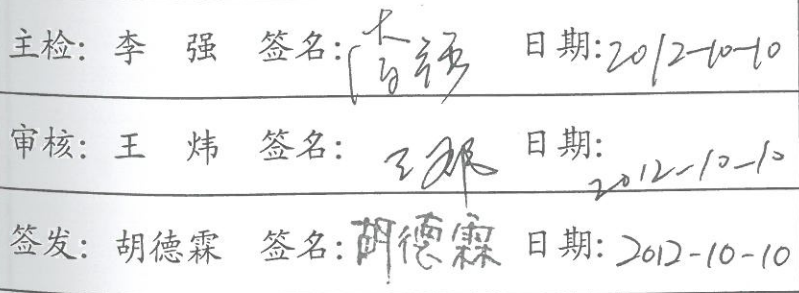 主检: 李 强 签名: 李强 日期: 2012-10-10
审核: 王 炜 签名: 王 日期: 2012-10-10
签发: 胡德霖 签名: 胡德霖 日期: 2012-10-10